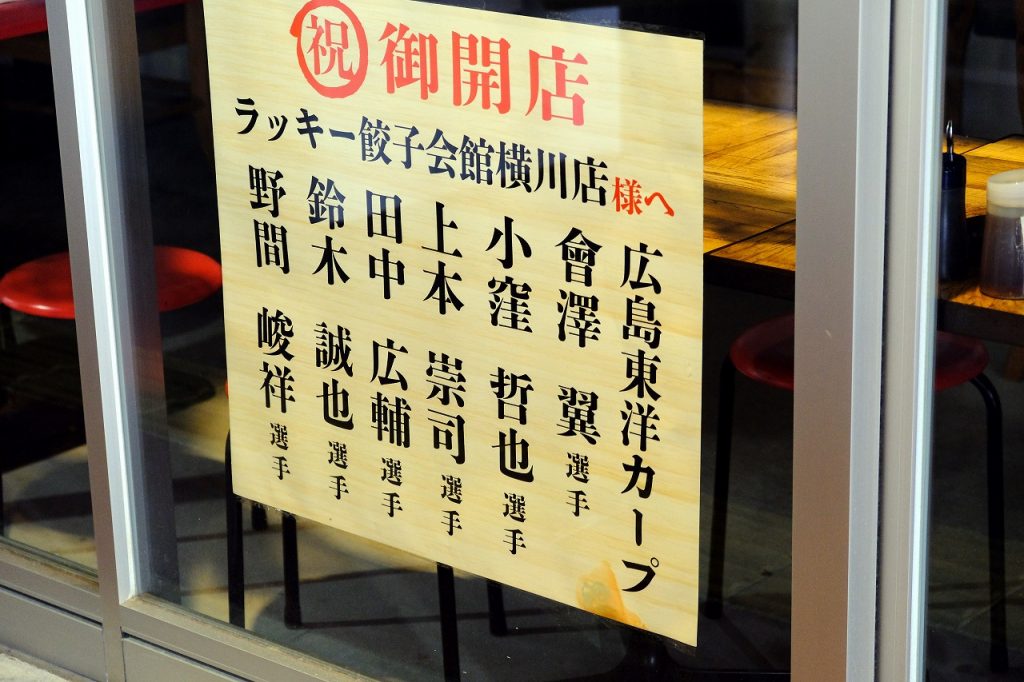 祝 御開店
ラッキー餃子会館横川店様へ
広島東洋カープ
會澤 翼 選手
小窪 哲也 選手
上本 崇司 選手
田中 広輔 選手
鈴木 誠也 選手
野間 峻祥 選手